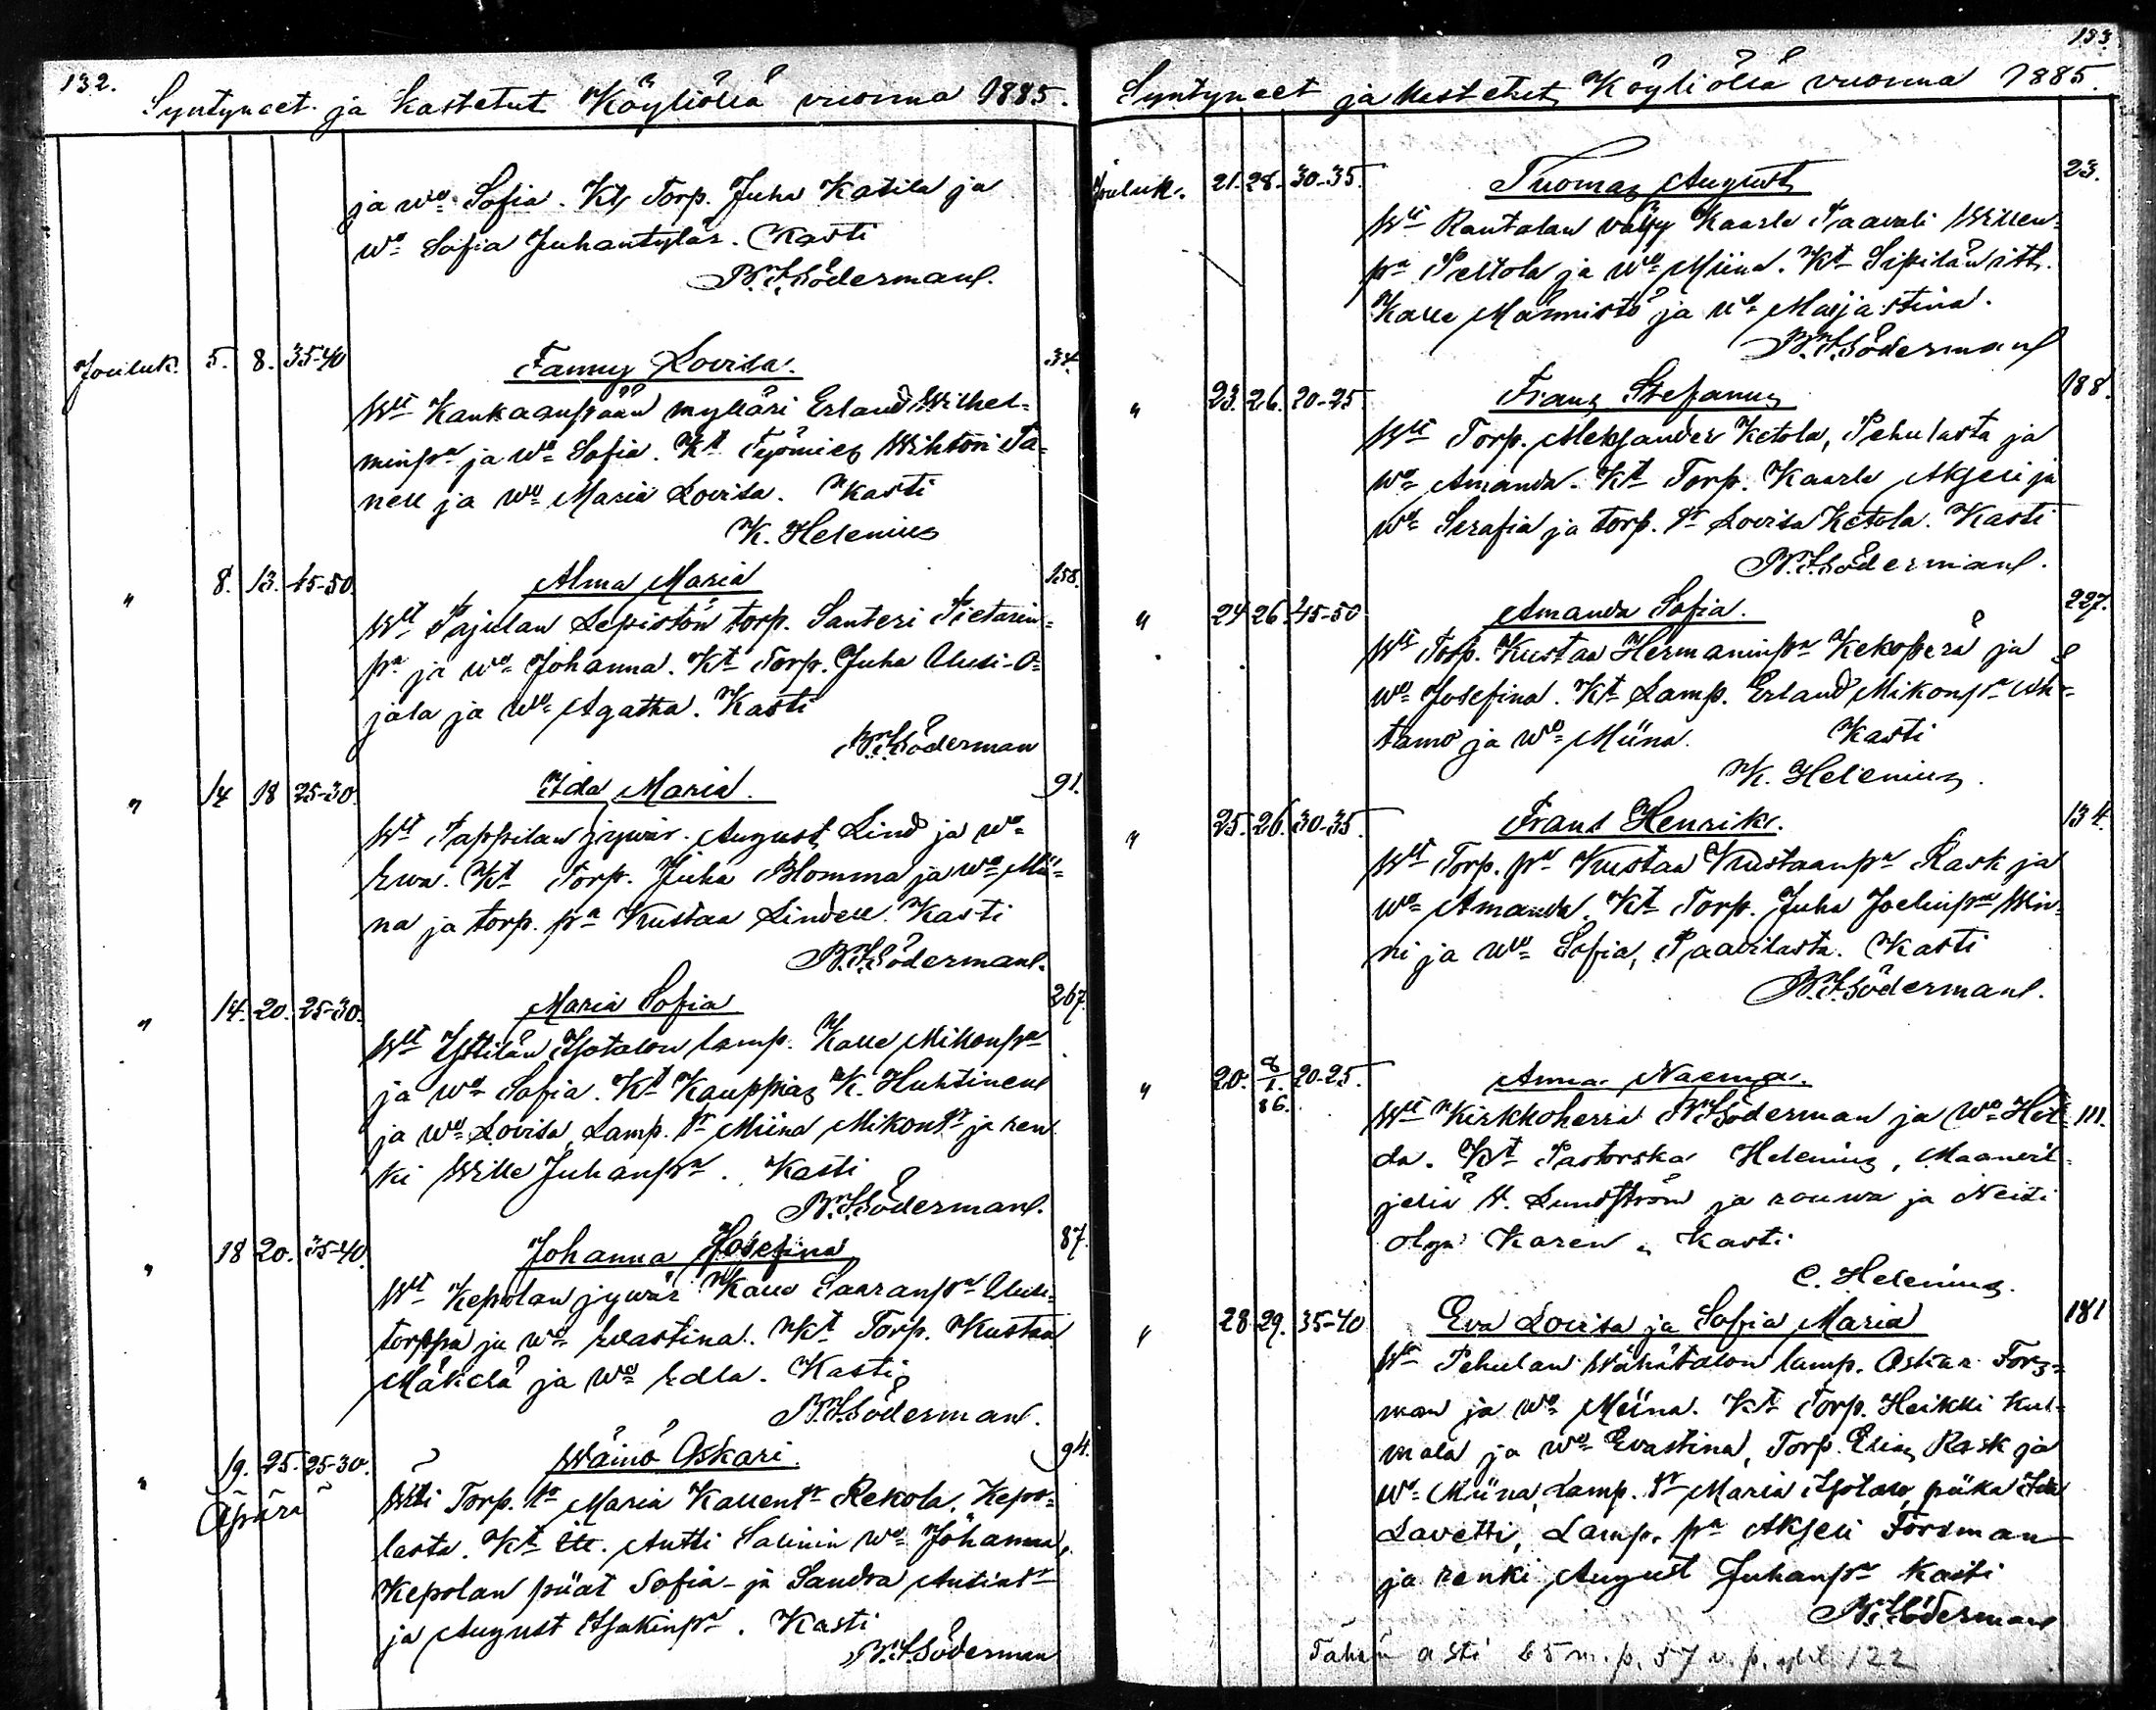 132.
Syntyneet ja kastetut Köyliöllä vuonna 1885.
ja wo Sofia. Kt Torp. Juha Katila ja
wo Sofia Juhantytär. Kasti
B. F. Söderman.
Jouluk. 5. 8. 35-40 Fanny Lovisa. 34.
Wt Kankaanpään mylläri Erland Wilhel-
minpa ja wo Sofia. Kt Työmies Wihtori Ta-
nell ja wo Maria Lovisa. Kasti
K. Helenius
" 8. 13. 45-50. Alma Maria 158.
Wt Pajulan Lepistön torp. Santeri Pietarin-
pa ja wo Johanna. Kt Torp. Juha Uusi-O-
jala ja wo Agatha. Kasti
B. F. Söderman
" 14 18 25-30. Ida Maria. 91.
Wt Pappilan jywär. August Lind ja wo
Ewa. Kt Torp. Juha Blomma ja wo Mii-
na ja torp. pa Kustaa Lindell. Kasti
B. F. Söderman.
" 14. 20. 25-30. Maria Sofia 267.
Wt Yttilän Isotalon lamp. Kalle Mikonpa
ja wo Sofia. Kt Kauppias K. Huhtinen
ja wo Lovisa, Lamp. tr Miina Mikontr ja ren
ki Wille Juhanpa. Kasti
B. F. Söderman.
" 18 20. 35-40. Johanna Josefina 87.
Wt Kepolan jywär Kalle Saaranpa Uusi-
torppa ja wo Evastina. Kt Torp. Kustaa
Mäkelä ja wo Edla. Kasti
B. F. Söderman.
" 19. 25. 25-30. Wäinö Oskari. 94.
Äpärä Äiti Torp. tr Maria Kallentr Rekola, Kepo-
lasta. Kt itt. Antti Salinin wo Johanna,
Kepolan piiat Sofia- ja Sandra Antintr
ja August Isakinpa. Kasti
B. F. Söderman
133.
Syntyneet ja kastetut Köyliöllä vuonna 1885.
Jouluk. 21. 28. 30-35. Tuomas August 23.
Wt Rantalan vävy Kaarle Paavali Willen-
pa Peltola ja wo Miina. Kt Sipilän itt.
Kalle Männistö ja wo Maijastina.
B. F. Söderman
" 23. 26. 20-25 Frans Stefanus 188.
Wt Torp. Aleksander Ketola, Pehulasta ja
wo Amanda. Kt Torp. Kaarle Akseli ja
wo Serafia ja torp. tr Lovisa Ketola. Kasti
B. F. Söderman.
" 24 26. 45-50 Amanda Sofia. 227.
Wt Torp. Kustaa Hermaninpa Kekoperä ja
wo Josefina. Kt Lamp. Erland Mikonpa Un-
tamo ja wo Miina. Kasti
K. Helenius.
" 25. 26. 30-35. Frans Henrik. 134.
Wt Torp. pa Kustaa Kustaanpa Rask ja
wo Amanda. Kt Torp. Juha Joelinpa Win-
ni ja wo Sofia, Paavilasta. Kasti
B. F. Söderman.
" 20. 8/1. 86. 20-25. Anna Naema.
Wt Kirkkoherra B. F. Söderman ja wo Hil- 111.
da. Kt Pastorska Helenius, Maanvil-
jeliä V. Lundström ja rouwa ja Neiti
Olga Karen. Kasti
C. Helenius.
" 28 29. 35-40 Eva Lovisa ja Sofia Maria 181
Wt Pehulan Wähätalon lamp. Oskar Fors-
man ja wo Miina. Kt Torp. Heikki Kul-
mala ja wo Evastina, Torp. Elias Rask ja
wo Miina, Lamp. tr Maria Isotalo, piika Ida
Lavetti, Lamp. pa Akseli Forsman
ja renki August Juhanpa Kasti
B. F. Söderman
Tähän asti 65 m.p. 57 v.p. yht. 122